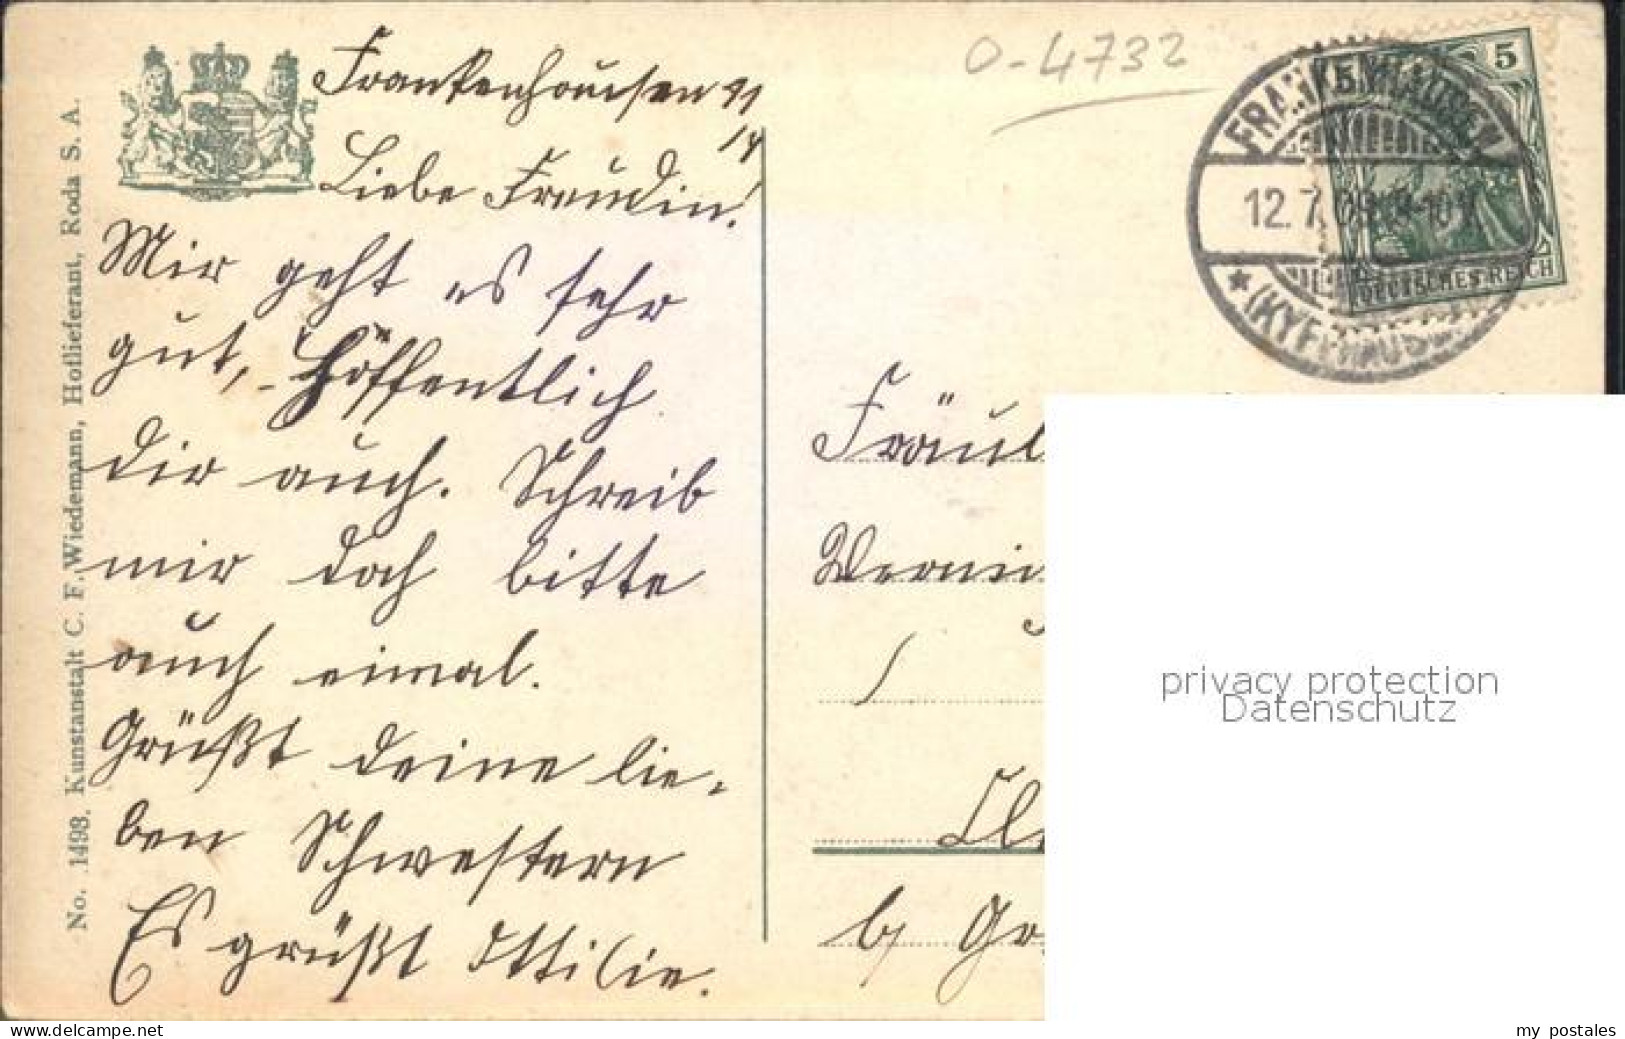 O-4732
Frankenhausen 11/
14
Liebe Freundin!
Mir geht es sehr
gut, Hoffentlich
dir auch. Schreib
mir doch bitte
auch eimal.
Grüßt deine lie-
ben Schwestern
Es grüßt Ottilie.
No. 1498. Kunstanstalt C. F. Wiedemann, Hoflieferant, Roda S. A.
FRANKENHAUSEN
12.7.09
* (KYFFHÄUSER
5
DEUTSCHES REICH
Fräul
b/ Go
privacy protection
Datenschutz
my postales
www.delcampe.net